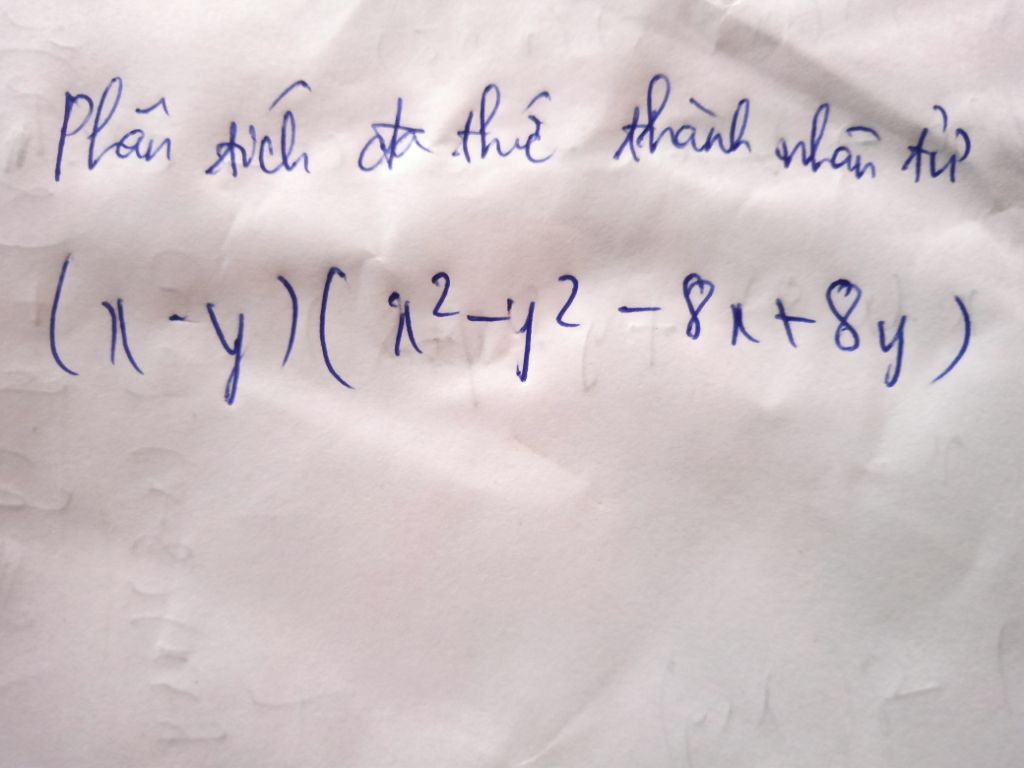 Phân tích đa thức thành nhân tử
(x - y)(x² - y² - 8x + 8y)